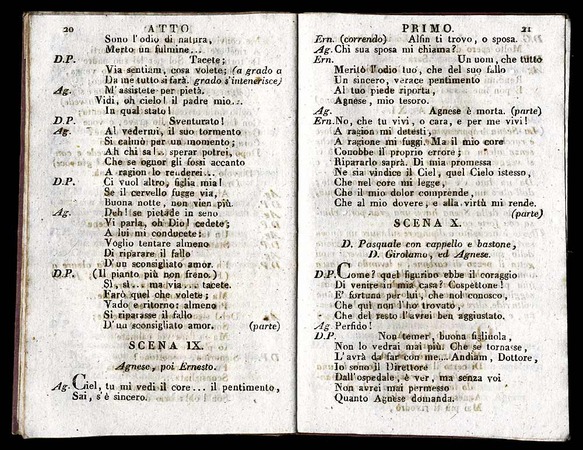 20 ATTO
Sono l'odio di natura,
Merto un fulmine...
D.P. Tacete;
Via sentiam, cosa volete; (a grado a
Da me tutto si farà. grado s'intenerisce)
Ag. M'assistete per pietà.
Vidi, oh cielo! il padre mio...
In qual stato!
D.P. Sventurato!
Ag. Al vedermi, il suo tormento
Si calmò per un momento;
Ah chi sa!.. sperar potrei,
Che se ognor gli fossi accanto
A ragion lo renderei...
D.P. Ci vuol altro, figlia mia!
Se il cervello fugge via,
Buona notte, non vien più.
Ag. Deh! se pietade in seno
Vi parla, oh Dio! cedete;
A lui mi conducete:
Voglio tentare almeno
Di riparare il fallo
D'un sconsigliato amor.
D.P. (Il pianto più non freno.)
Sì, sì... ma via... tacete.
Farò quel che volete;
Vado e ritorno: almeno
Si riparasse il fallo
D'un sconsigliato amor. (parte)
SCENA IX.
Agnese, poi Ernesto.
Ag. Ciel, tu mi vedi il core... il pentimento,
Sai, s'è sincero.
PRIMO. 21
Ern. (correndo) Alfin ti trovo, o sposa.
Ag. Chi sua sposa mi chiama?
Ern. Un uom, che tutto
Meritò l'odio tuo, che del suo fallo
Un sincero, verace pentimento
Al tuo piede riporta,
Agnese, mio tesoro.
Ag. Agnese è morta. (parte)
Ern. No, che tu vivi, o cara, e per me vivi!
A ragion mi detesti,
A ragione mi fuggi. Ma il mio core
Conobbe il proprio errore;
Ripararlo saprà. Di mia promessa
Ne sia vindice il Ciel, quel Cielo istesso,
Che nel core mi legge,
Che il mio dolor comprende,
Che al mio dovere, e alla virtù mi rende.
(parte)
SCENA X.
D. Pasquale con cappello e bastone,
D. Girolamo, ed Agnese.
D.P. Come? quel figurino ebbe il coraggio
Di venire in mia casa? Cospettone!
E' fortuna per lui, che nol conosco,
Che qui non l'ho trovato,
Che del resto l'avrei ben aggiustato.
Ag. Perfido!
D.P. Non temer, buona figliuola,
Non lo vedrai mai più. Che se tornasse,
L'avrà da far con me... Andiam, Dottore,
Io sono il Direttore
Dall'ospedale, è ver, ma senza voi
Non avrei mai permesso
Quanto Agnese domanda.